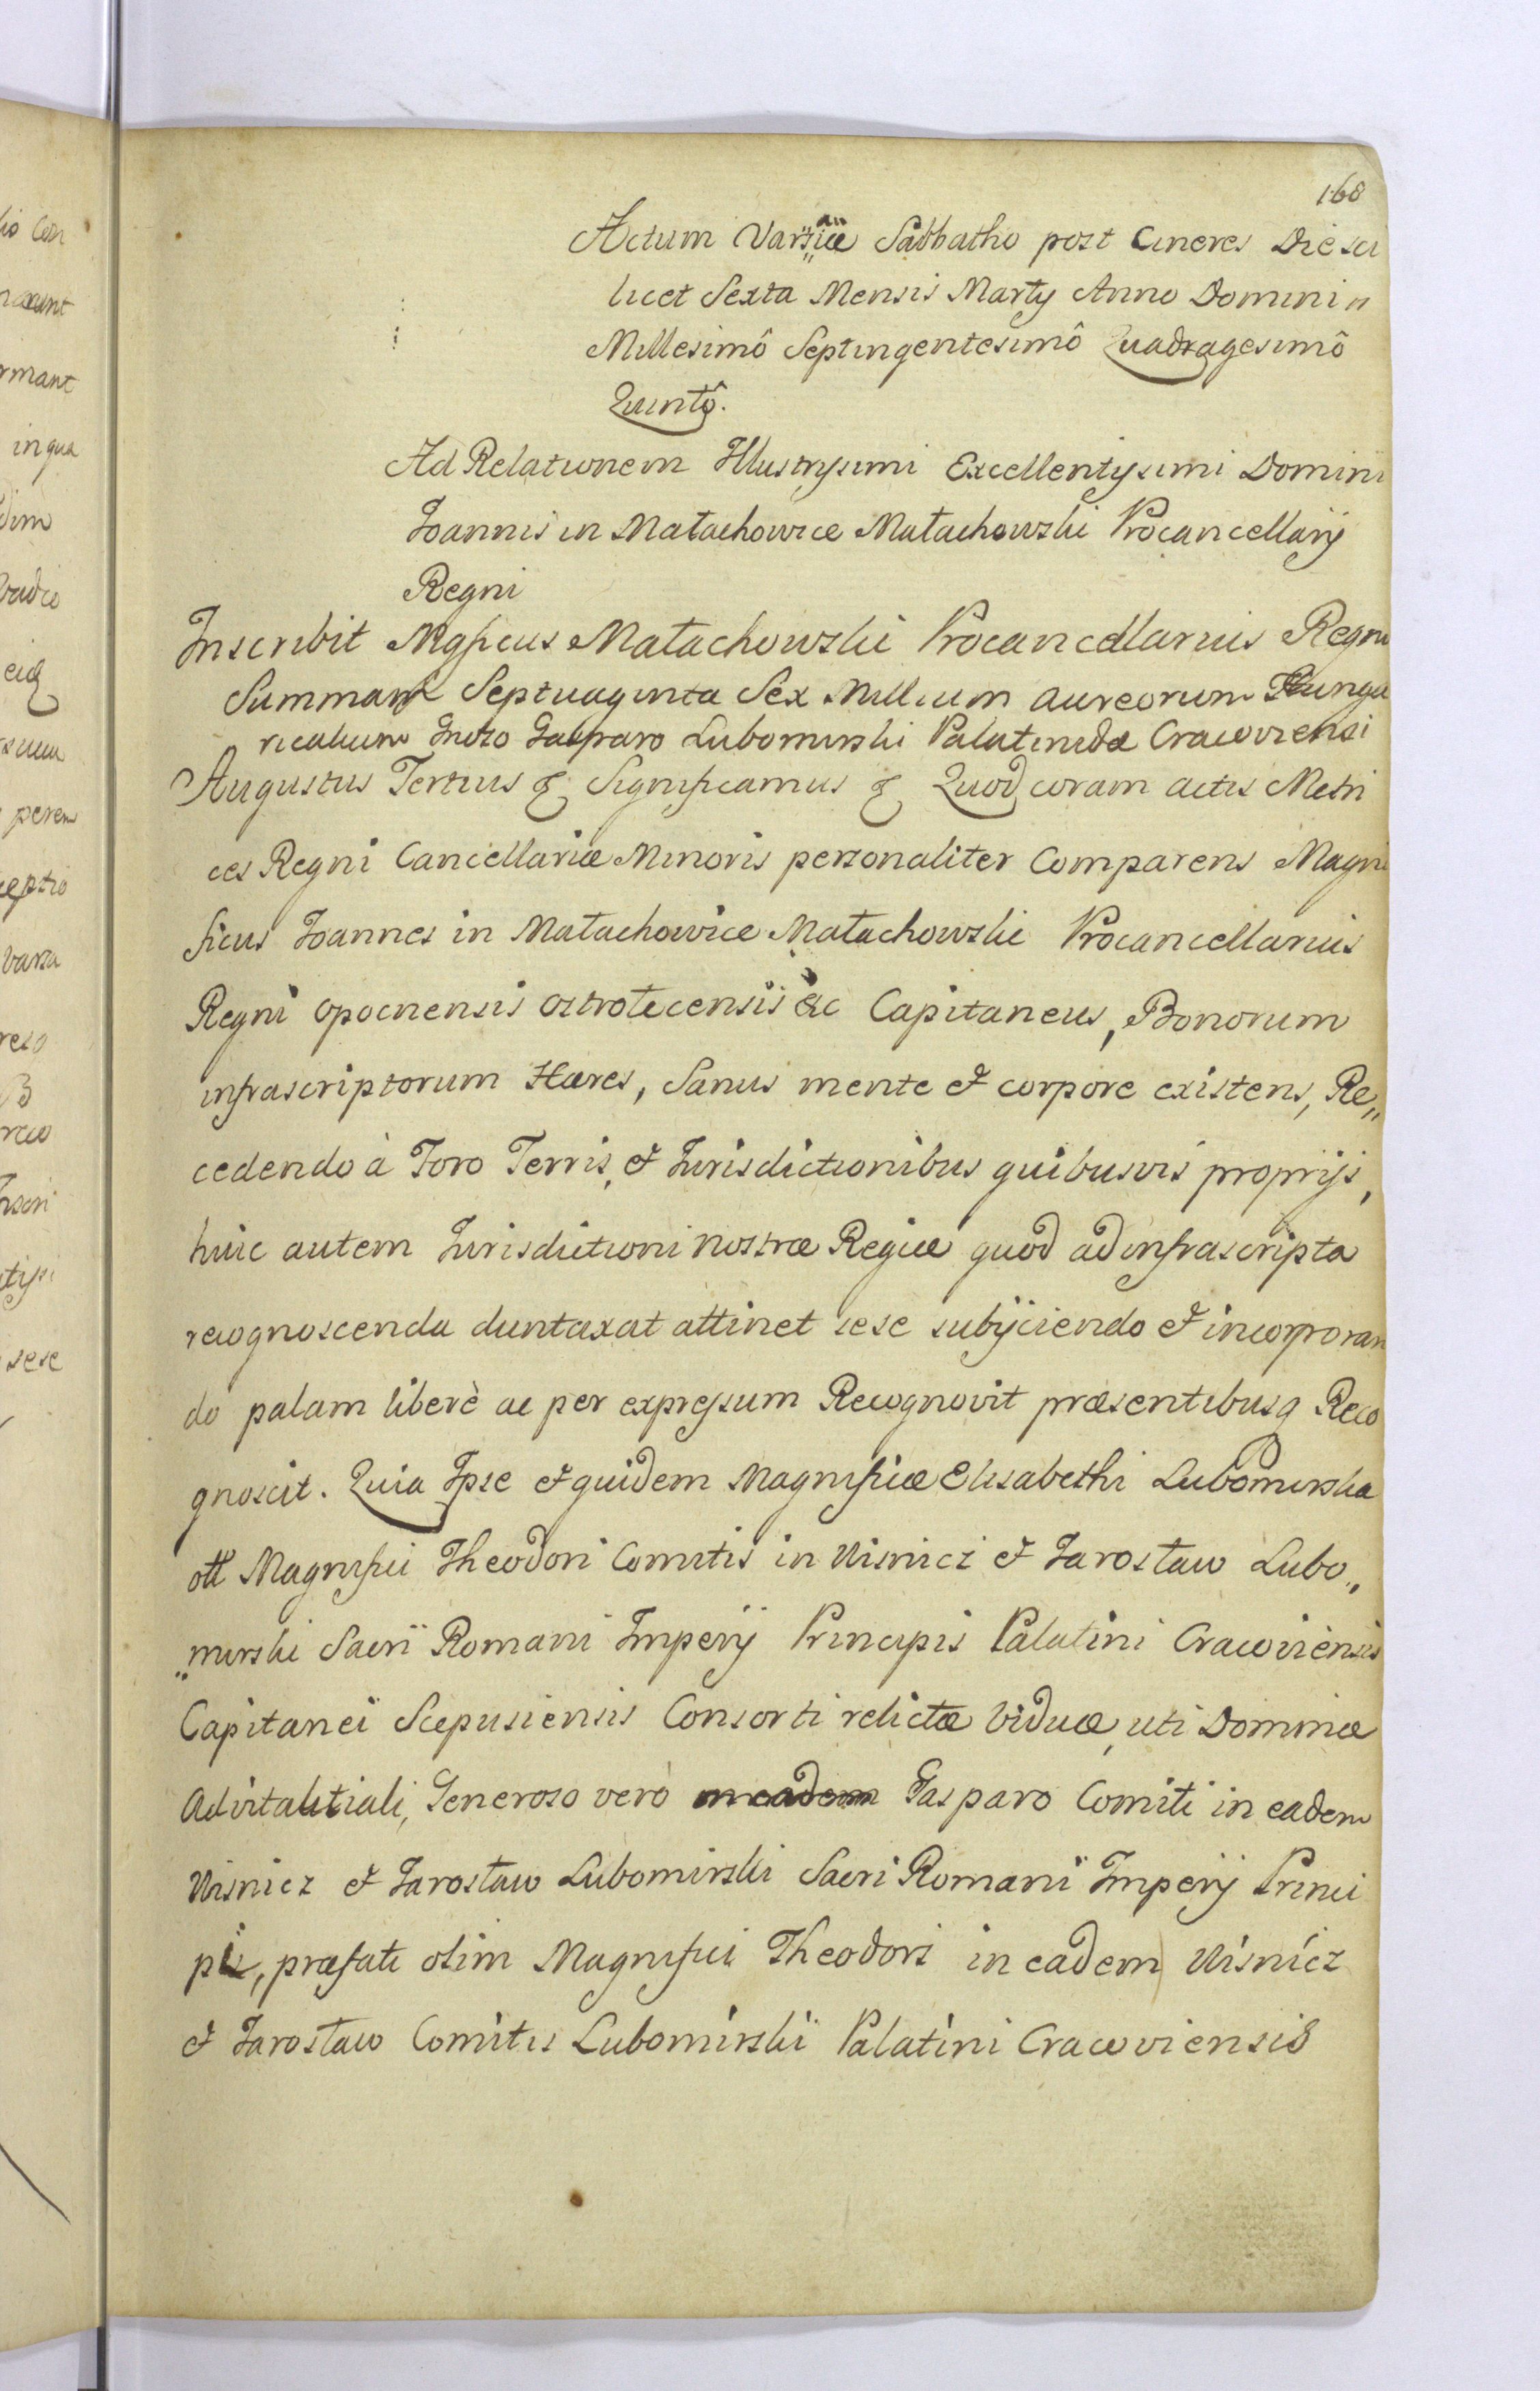 168
Actum Varsaviæ Sabbatho post Cineres Die sci
licet Sexta Mensis Martÿ Anno Domini
Millesimô Septingentesimô Quadragesimô
Quintô.
Ad Relationem Illustrysimi Excellentysimi Domini
Joannis in Małachowice Małachowski Procancellarÿ
Regni
Inscribit Mgficus Małachowski Procancellarius Regni
Summam Septuaginta Sex Millium aureorum Hunga
ricalium Gnoso Gasparo Lubomirski Palatinidæ Cracoviensi
Augustus Tertius & Significamus & Quod coram actis Metri
ces Regni Cancellariæ Minoris personaliter Comparens Magni
ficus Joannes in Małachowice Małachowski Procancellarius
Regni Opocnensis Ostrołecensis &c Capitaneus, Bonorum
infrascriptorum Hæres, Sanus mente & corpore existens, Re„
cedendo à Foro Terris, & Jurisdictionibus quibusvis proprijs,
huic autem Jurisdictioni nostræ Regiæ quod ad infrascripta
recognoscenda duntaxat attinet sese subÿciendo & incorporan
do palam liberè ac per expressum Recognovit præsentibusq Reco
gnoscit. Quia Ipse & quidem Magnificæ Elisabethi Lubomirska
ott Magnifici Theodori Comitis in Wisnicz & Jarosław Lubo„
„mirski Sacri Romani Imperÿ Principis Palatini Cracoviensis
Capitanei Scepusiensis Consorti relictæ viduæ, uti Dominæ
Advitalitiali, Generoso verò in eadem Gasparo Comiti in eadem
Wisnicz & Jarosław Lubomirski Sacri Romani Imperÿ Princi
pis, præfati olim Magnifici Theodori in eadem Wisnicz
& Jarosław Comitis Lubomirski Palatini Cracoviensis